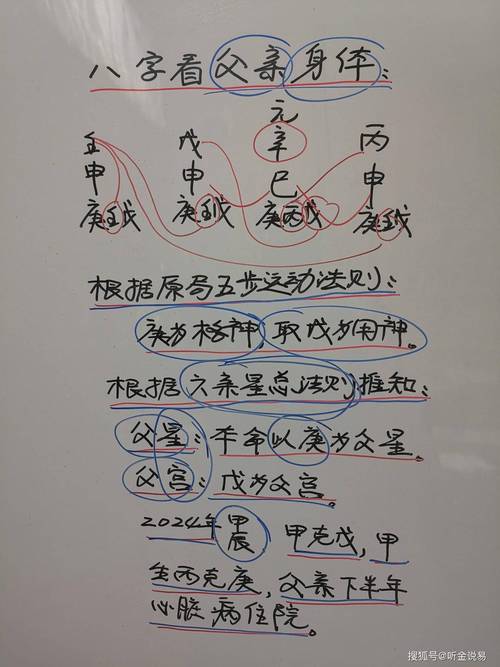 八字看父亲身体：
元
壬 戊 辛 丙
申 申 巳 申
庚壬戊 庚壬戊 庚丙戊 庚壬戊
根据原局五步运动法则：
庚为格神 取戊为用神。
根据六亲星总法则推知：
父星：本命以庚为父星。
父宫：戊为父宫。
2024年甲辰 甲克戊，甲
生丙克庚，父亲下半年
心脏病住院。
搜狐号@听金说易